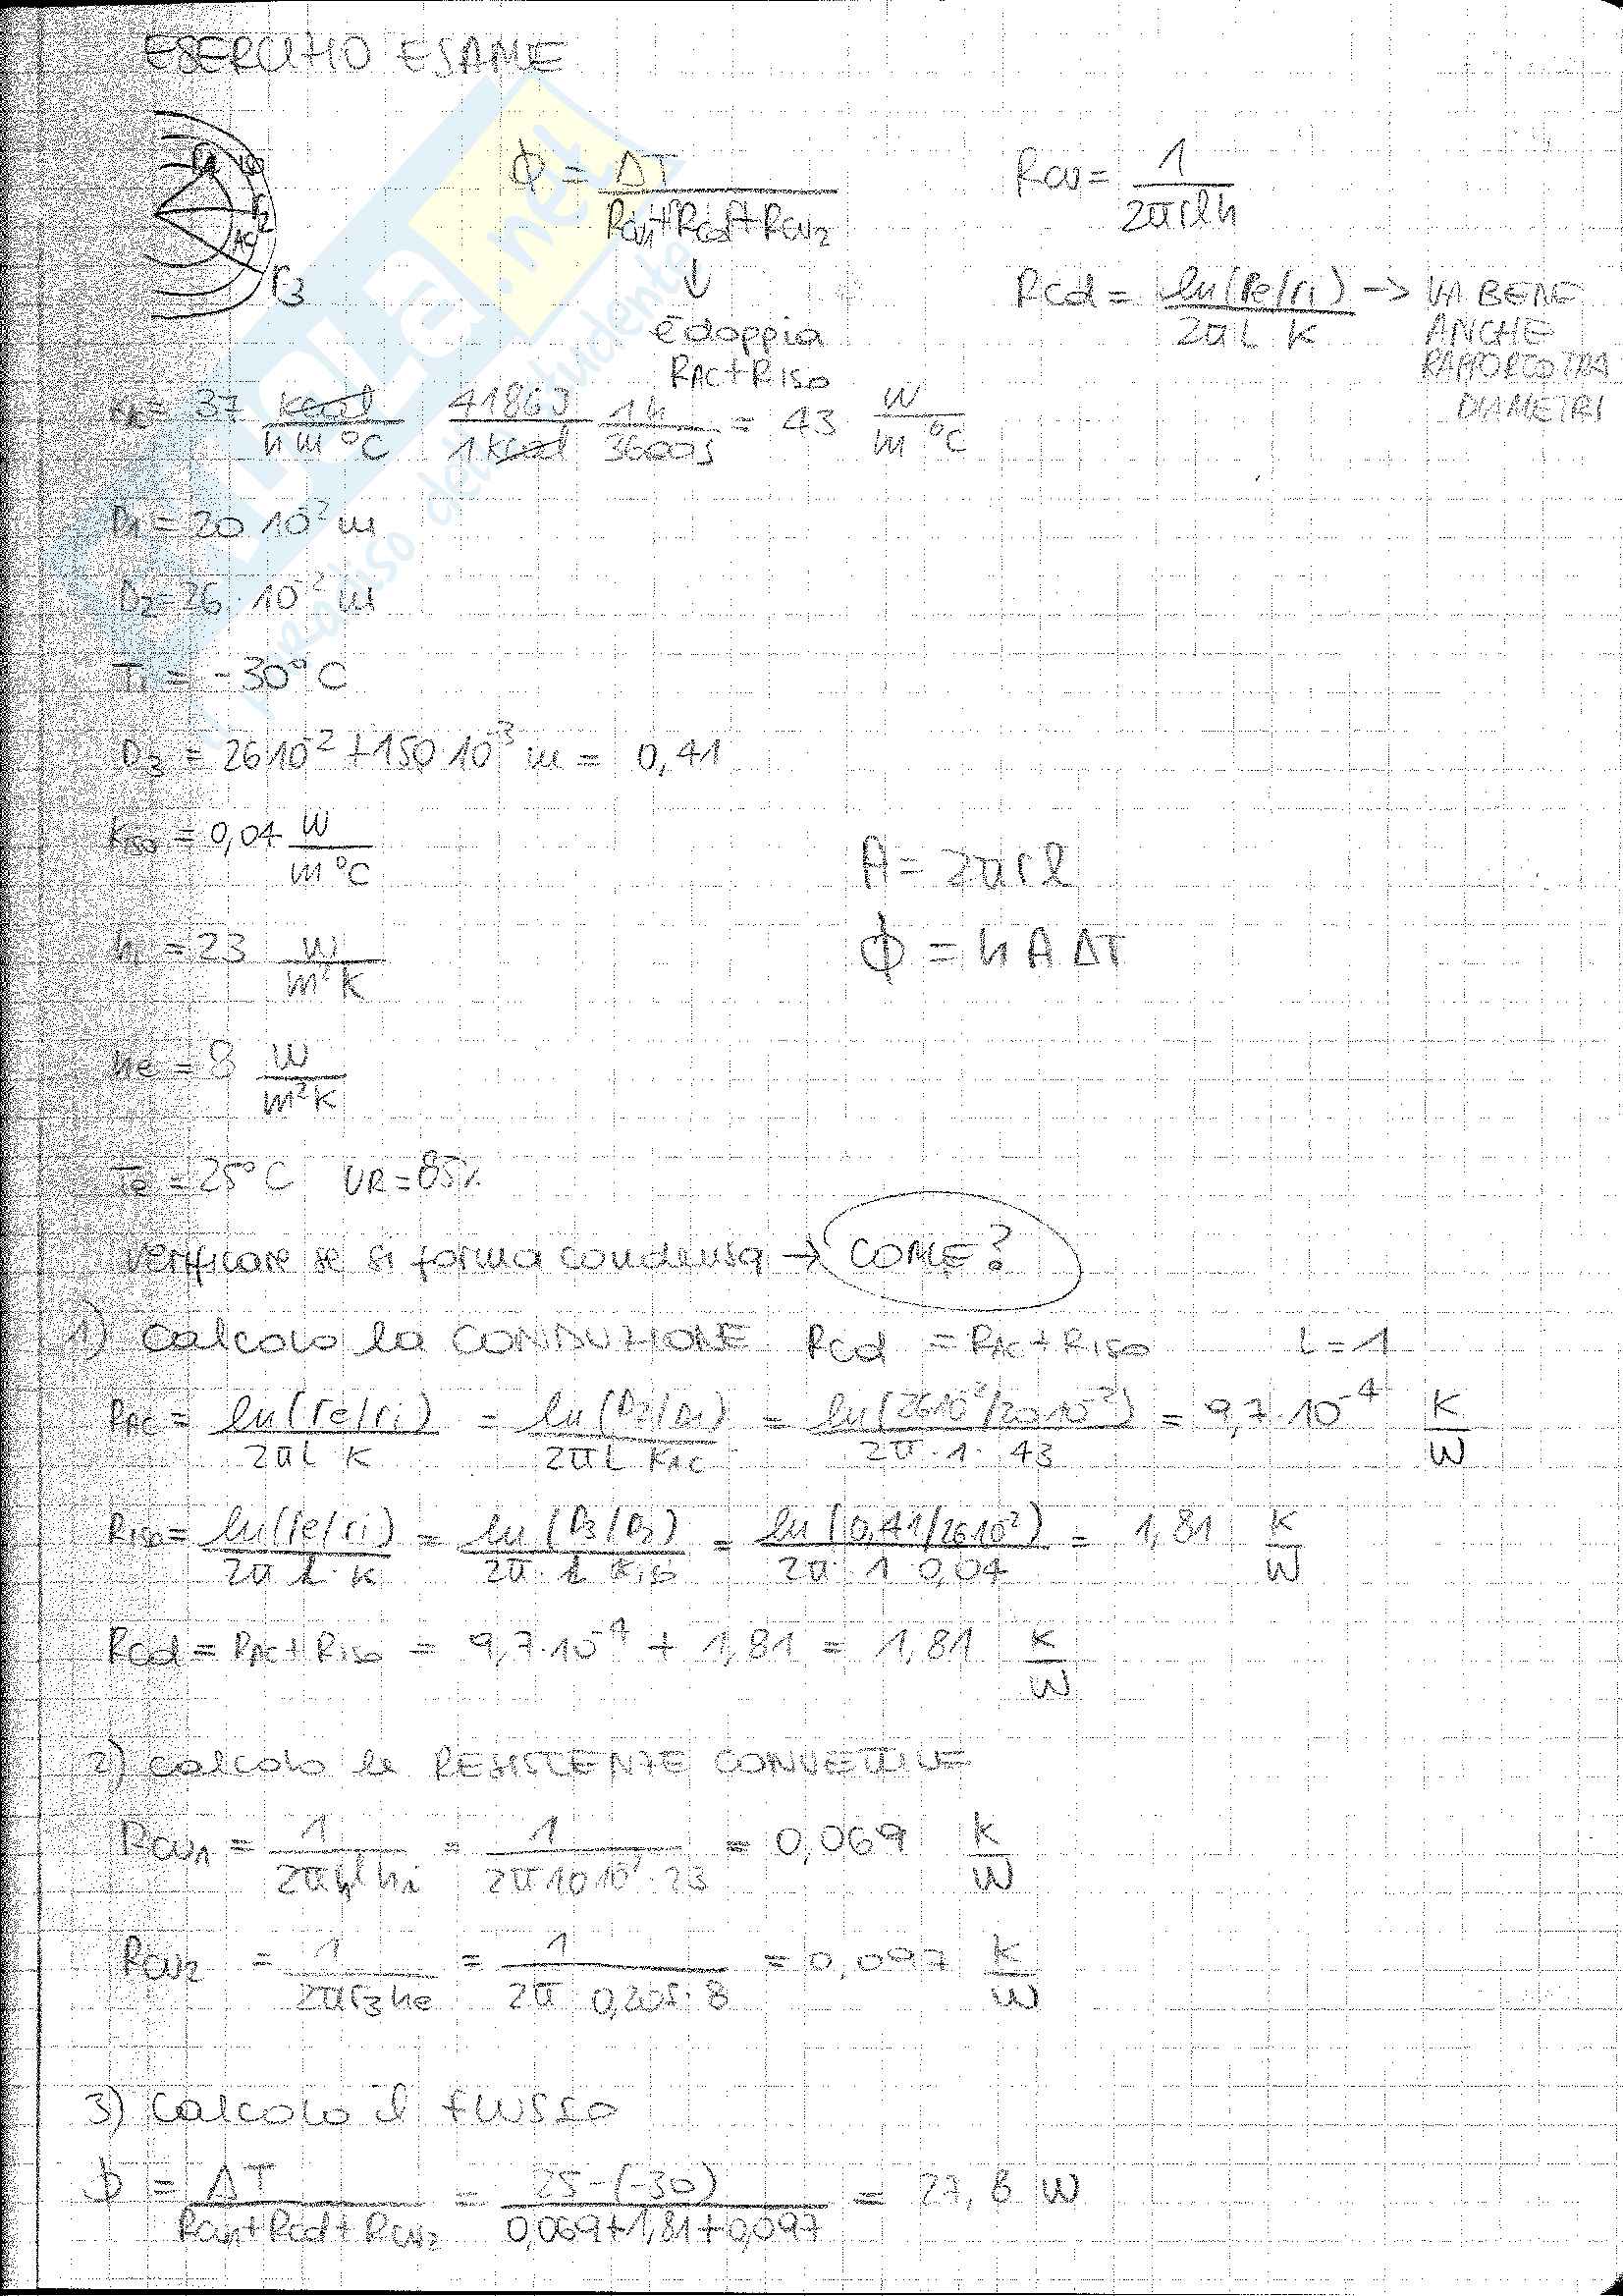 ESERCIZIO ESAME
r1 ISO
r2
AC
r3
ϕ = ΔT / (Rcv1 + Rcd + Rcv2)
↓
è doppia
RAC + RISO
Rcv = 1 / (2π r l h)
Rcd = ln(re/ri) / (2π L K) → VA BENE
ANCHE
RAPPORTO TRA
DIAMETRI
= 37 kcal / (h m °C) 4186 J / 1 kcal 1h / 3600s = 43 W / (m °C)
D1 = 20 10^-2 m
D2 = 26 · 10^-2 m
Ti = -30°C
D3 = 26 10^-2 + 150 10^-3 m = 0,41
KISO = 0,04 W / (m °C)
A = 2π r l
hi = 23 W / (m² K)
ϕ = h A ΔT
he = 8 W / (m² K)
Te = 25°C UR = 85%
Verificare se si forma condensa → COME?
1) Calcolo la CONDUZIONE Rcd = RAC + RISO L = 1
RAC = ln(re/ri) / (2π L K) = ln(D2/D1) / (2π L KAC) = ln(26 10^-2 / 20 10^-2) / (2π · 1 · 43) = 9,7 · 10^-4 K/W
RISO = ln(re/ri) / (2π L · K) = ln(D3/D2) / (2π · L KISO) = ln(0,41/26 10^-2) / (2π · 1 0,04) = 1,81 K/W
Rcd = RAC + RISO = 9,7 · 10^-4 + 1,81 = 1,81 K/W
2) calcolo le RESISTENZE CONVETTIVE
Rcv1 = 1 / (2π r1 l hi) = 1 / (2π 10 10^-2 · 23) = 0,069 K/W
Rcv2 = 1 / (2π r3 he) = 1 / (2π 0,205 · 8) = 0,097 K/W
3) Calcolo il flusso
ϕ = ΔT / (Rcv1 + Rcd + Rcv2) = 25 - (-30) / (0,069 + 1,81 + 0,097) = 27,8 W